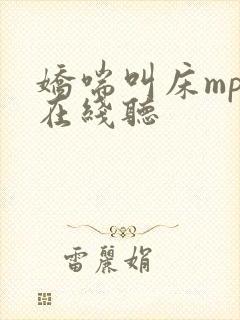 嬌喘叫床mp
在綫聽
雷麗娟